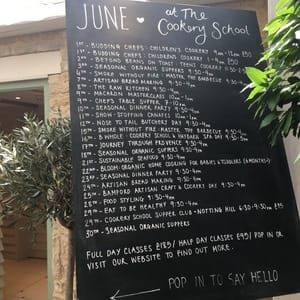 JUNE ♥ at The Cookery School
1st - BUDDING CHEFS: CHILDREN'S COOKERY 9am - 12pm £50
2nd - BUDDING CHEFS: CHILDREN'S COOKERY
2nd - BEYOND BEANS ON TOAST: TEENS COOKERY
3rd - SEASONAL ORGANIC SUPPERS 9.30-4pm
4th - SMOKE WITHOUT FIRE: MASTER THE BARBECUE
7th - ARTISAN BREAD MAKING 9.30-4pm
8th - THE RAW KITCHEN 9.30-4pm
9th - MACARON MASTERCLASS 10am-1pm
9th - CHEF'S TABLE SUPPER, 7-10pm
10th - SEASONAL DINNER PARTY 9.30-4pm
11th - SHOW-STOPPING CANAPES 10am-1pm
12th - NOSE TO TAIL BUTCHERY DAY 9.30-4pm
15th - SMOKE WITHOUT FIRE: MASTER THE BARBECUE 9.30-4pm
16th - B WHOLE: COOKERY SCHOOL & HAYBARN SPA DAY
17th - JOURNEY THROUGH PROVENCE 9.30-4pm
18th - SEASONAL ORGANIC SUPPERS 9.30-4pm
21st - SUSTAINABLE SEAFOOD 9.30-4pm
22nd - BLOOM: ORGANIC HOME COOKING FOR BABIES & TODDLERS (6 MONTHS+)
23rd - SEASONAL DINNER PARTY 9.30-4pm
24th - ARTISAN BREAD MAKING 9.30-4pm
25th - BAMFORD ARTISAN CRAFT & COOKERY DAY 9.30-4pm
26th - FOOD STYLING 9.30-4pm
29th - EAT TO BE HEALTHY 9.30-4pm
29th - COOKERY SCHOOL SUPPER CLUB - NOTTING HILL 6.30-9.30pm
30th - SEASONAL ORGANIC SUPPERS
FULL DAY CLASSES £185/ HALF DAY CLASSES £95/ POP IN OR
VISIT OUR WEBSITE TO FIND OUT MORE.
← POP IN TO SAY HELLO